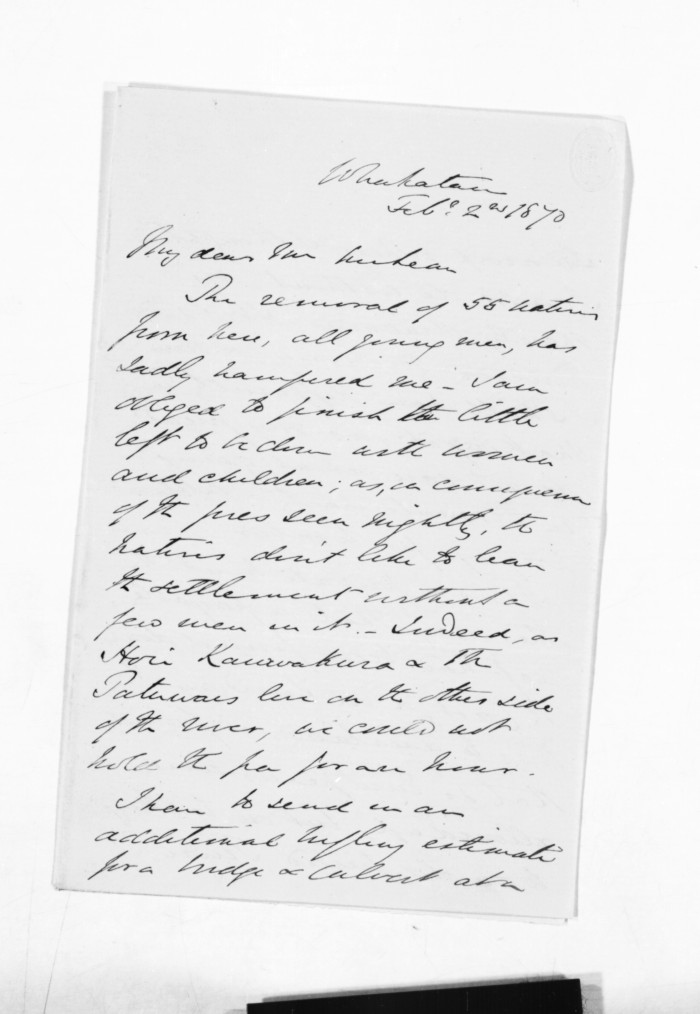 Whakatane
Feby. 2nd 1870
My dear Mr McLean
The removal of 55 natives
from here, all young men, has
sadly hampered me - I am
obliged to finish the little
left to be done with women
and children; as, in consequence
of the fires seen nightly, the
natives don't like to leave
the settlement without a
few men in it. - Indeed, as
Hori Kawakura & the
Patuwais live on the other side
of the river, we could not
hold the pa for an hour.
I have to send in an
additional trifling estimate
for a bridge & culvert at a